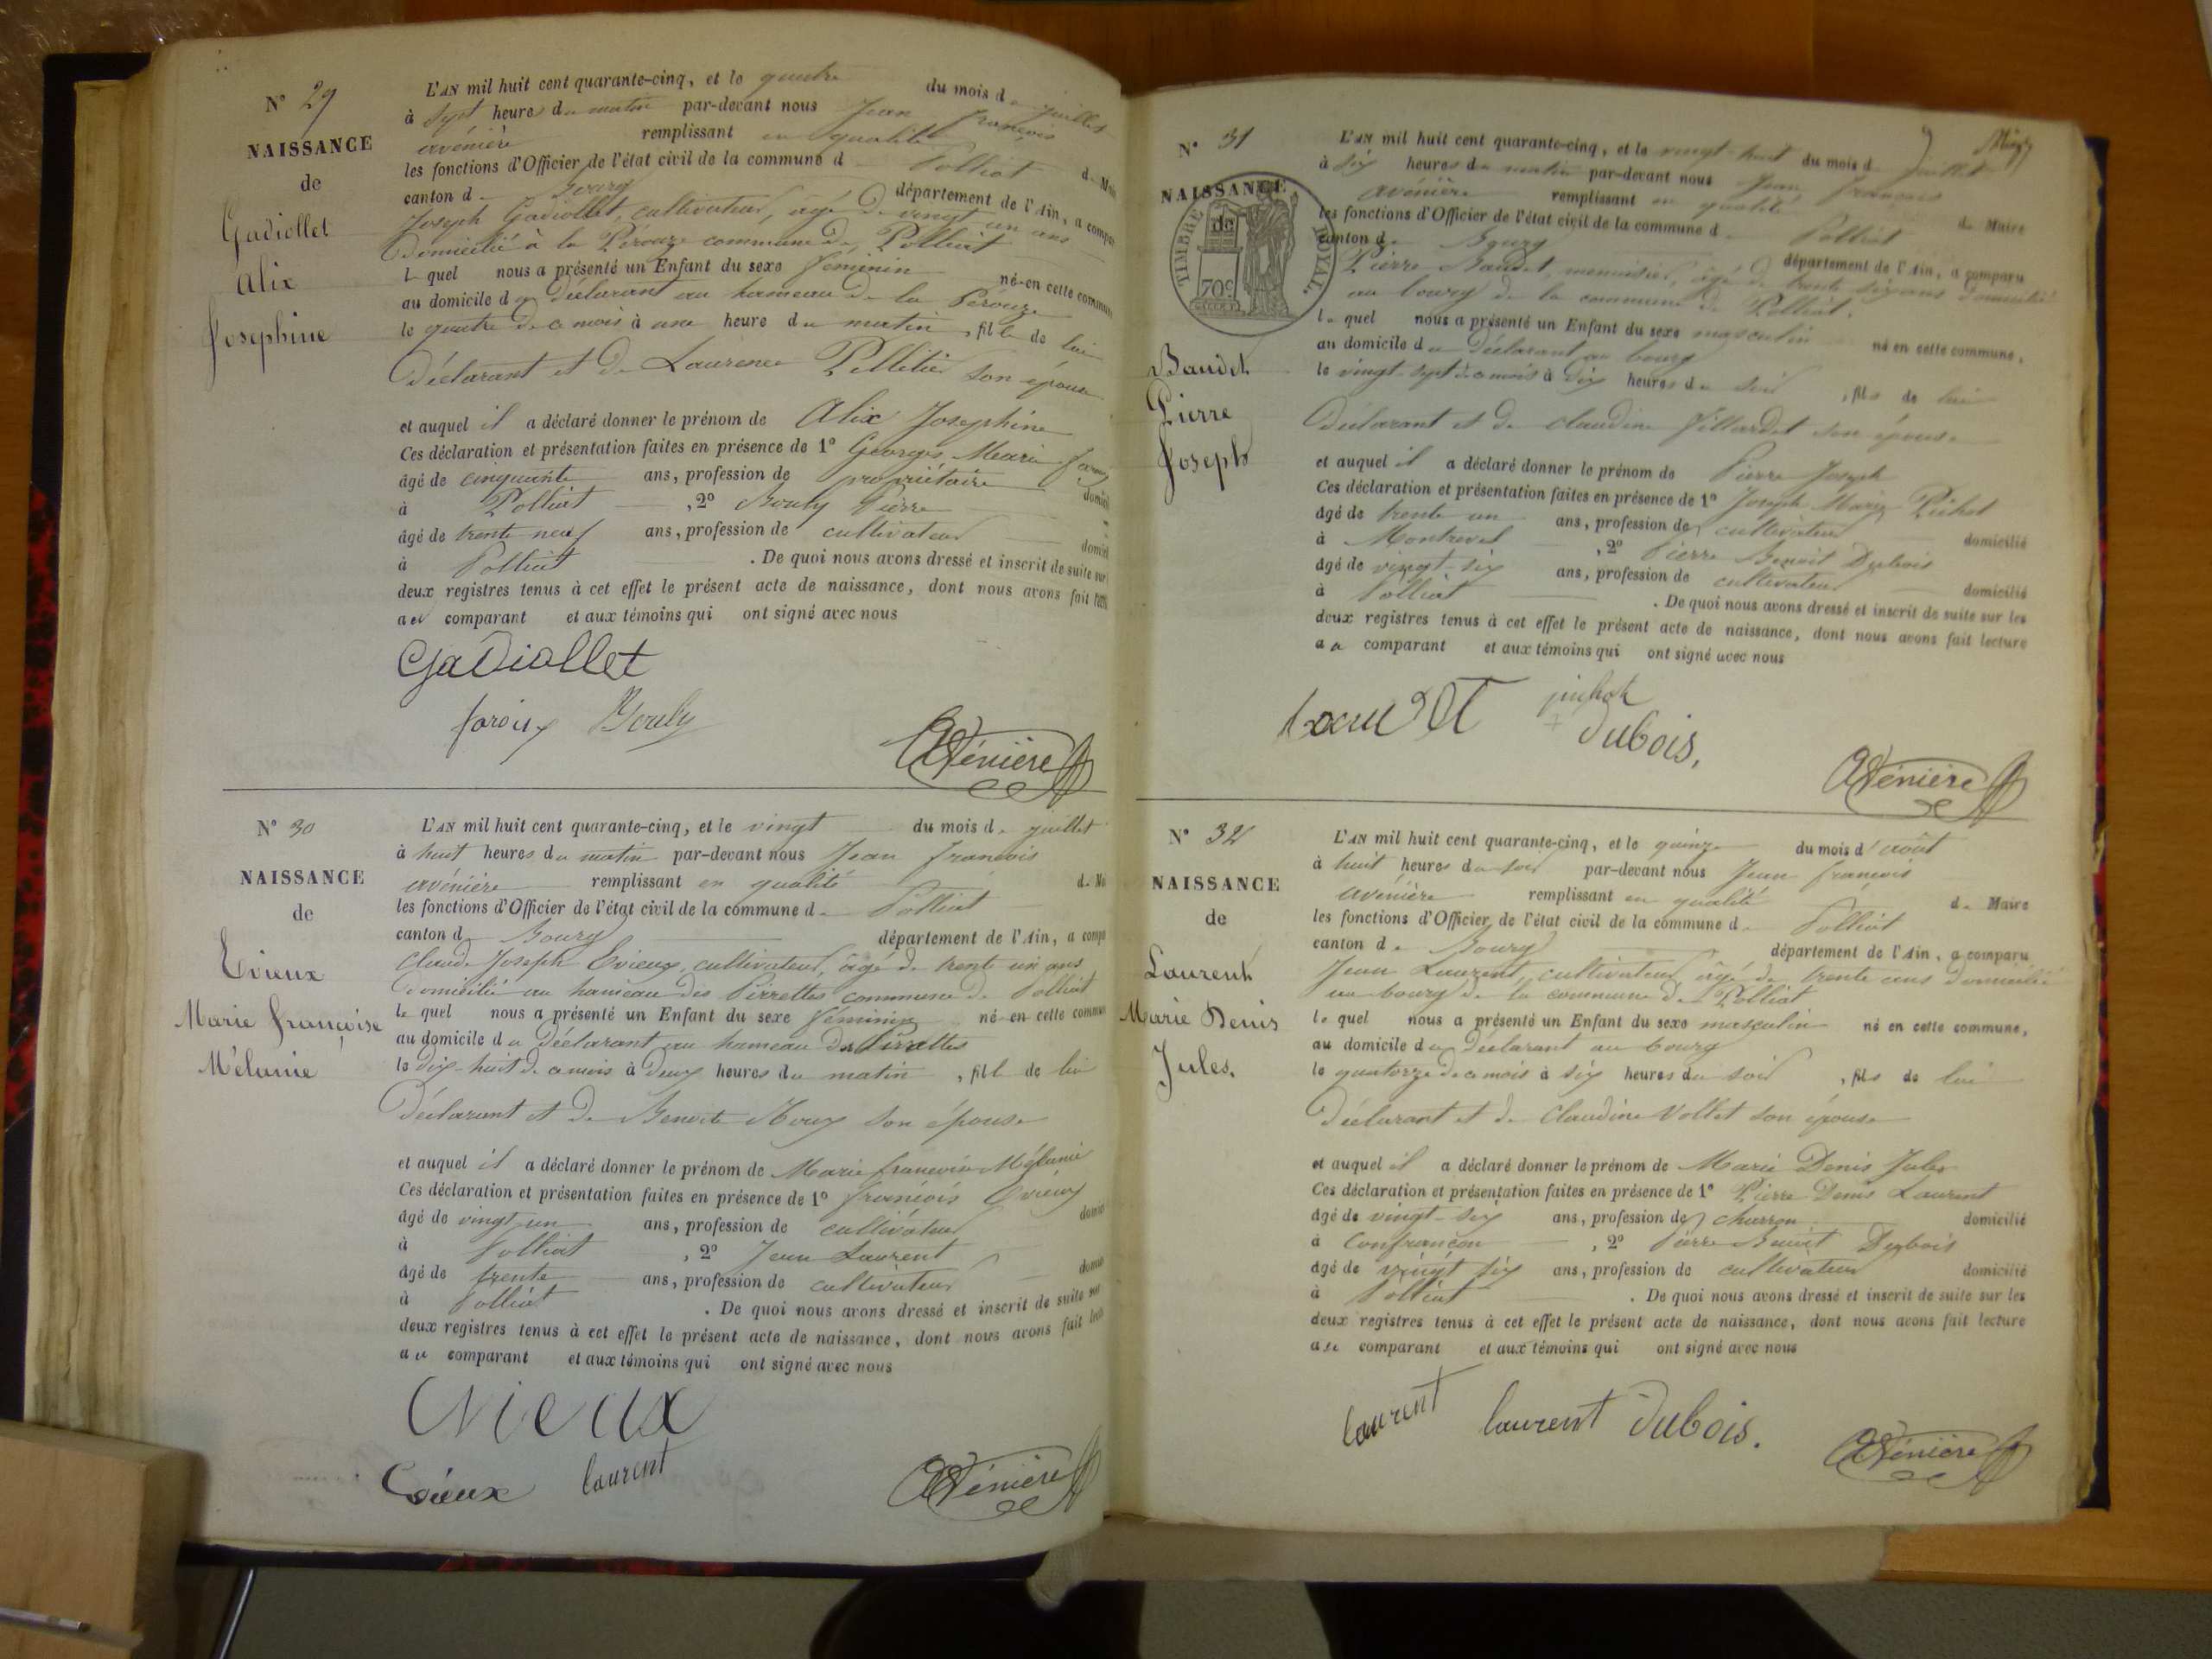 N° 29
NAISSANCE
de
Gadiollet
Alix
Josephine
L'AN mil huit cent quarante-cinq, et le quatre du mois de juillet
à sept heures du matin par-devant nous Jean françois
avénière remplissant en qualité de Mai
les fonctions d'Officier de l'état civil de la commune de Polliat
canton de Bourg département de l'Ain, a compar
Joseph Gadiollet, cultivateur, agé de vingt un ans
domicilié à la Pérouze commune de Polliat
lequel nous a présenté un Enfant du sexe féminin né en cette commune
au domicile du déclarant au hameau de la Pérouze
le quatre de ce mois à une heure du matin, fille de lui
déclarant et de Laurence Pelletier son épouse
et auquel il a déclaré donner le prénom de Alix Josephine
Ces déclaration et présentation faites en présence de 1° Georges Marie
âgé de cinquante ans, profession de propriétaire domici
à Polliat, 2° Bouly Pierre
âgé de trente neuf ans, profession de cultivateur domici
à Polliat. De quoi nous avons dressé et inscrit de suite sur
deux registres tenus à cet effet le présent acte de naissance, dont nous avons fait lec
au comparant et aux témoins qui ont signé avec nous
Gadiollet
Bouly
Avénière
N° 30
NAISSANCE
de
Evieux
Marie françoise
Mélanie
L'AN mil huit cent quarante-cinq, et le vingt du mois de juillet
à huit heures du matin par-devant nous Jean françois
avénière remplissant en qualité de Ma
les fonctions d'Officier de l'état civil de la commune de Polliat
canton de Bourg département de l'Ain, a compa
Claude Joseph Evieux, cultivateur, âgé de trente un ans
domicilié au hameau des Pirrettes commune de Polliat
lequel nous a présenté un Enfant du sexe féminin né en cette commun
au domicile du déclarant au hameau des Pirrettes
le dix-huit de ce mois à deux heures du matin, fille de lui
déclarant et de Benoite Roux son épouse
et auquel il a déclaré donner le prénom de Marie françoise Mélanie
Ces déclaration et présentation faites en présence de 1° françois Evieux
âgé de vingt un ans, profession de cultivateur domici
à Polliat, 2° Jean Laurent
âgé de trente ans, profession de cultivateur domici
à Polliat. De quoi nous avons dressé et inscrit de suite sur
deux registres tenus à cet effet le présent acte de naissance, dont nous avons fait lect
au comparant et aux témoins qui ont signé avec nous
Evieux
Evieux laurent
Avénière
N° 31
NAISSANCE
de
TIMBRE ROYAL.
70c
Baudet
Pierre
Joseph
L'AN mil huit cent quarante-cinq, et le vingt-huit du mois de juillet
à six heures du matin par-devant nous Jean françois
avénière remplissant en qualité de Maire
les fonctions d'Officier de l'état civil de la commune de Polliat
canton de Bourg département de l'Ain, a comparu
Pierre Baudet, menuisier, âgé de trente six ans domicilié
au bourg de la commune de Polliat.
lequel nous a présenté un Enfant du sexe masculin né en cette commune,
au domicile du déclarant au bourg
le vingt-sept de ce mois à dix heures du soir, fils de lui
déclarant et de Claudine Villardet son épouse
et auquel il a déclaré donner le prénom de Pierre Joseph
Ces déclaration et présentation faites en présence de 1° Joseph Marie Pichot
âgé de trente un ans, profession de cultivateur domicilié
à Montrevel, 2° Pierre Benoit Dubois
âgé de vingt-six ans, profession de cultivateur domicilié
à Polliat. De quoi nous avons dressé et inscrit de suite sur les
deux registres tenus à cet effet le présent acte de naissance, dont nous avons fait lecture
au comparant et aux témoins qui ont signé avec nous
baudet pichot
dubois.
Avénière
N° 32
NAISSANCE
de
Laurent
Marie Denis
Jules.
L'AN mil huit cent quarante-cinq, et le quinze du mois d'août
à huit heures du soir par-devant nous Jean françois
avénière remplissant en qualité de Maire
les fonctions d'Officier de l'état civil de la commune de Polliat
canton de Bourg département de l'Ain, a comparu
Jean Laurent, cultivateur âgé de trente ans domicilié
au bourg de la commune de Polliat
lequel nous a présenté un Enfant du sexe masculin né en cette commune,
au domicile du déclarant au bourg
le quatorze de ce mois à six heures du soir, fils de lui
déclarant et de Claudine Vollet son épouse
et auquel il a déclaré donner le prénom de Marie Denis Jules
Ces déclaration et présentation faites en présence de 1° Pierre Denis Laurent
âgé de vingt-six ans, profession de charron domicilié
à Confrançon, 2° Pierre Benoit Dubois
âgé de vingt six ans, profession de cultivateur domicilié
à Polliat. De quoi nous avons dressé et inscrit de suite sur les
deux registres tenus à cet effet le présent acte de naissance, dont nous avons fait lecture
au comparant et aux témoins qui ont signé avec nous
laurent laurent dubois.
Avénière